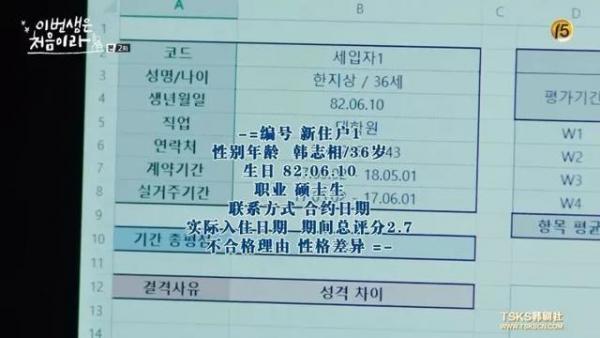 이번생은
처음이라
2회
15
A
B
C
D
코드
세입자1
성명/나이
한지상 / 36세
생년월일
82.06.10
평가기간
직업
대학원
W1
연락처
43
W2
계약기간
18.05.01
W3
실거주기간
- 17.06.01
W4
항목 평균
기간 총평점
결격사유
성격 차이
2
3
4
5
6
7
8
9
10
11
12
13
14
-=编号 新住户1
性别年龄 韩志相/36岁
生日 82.06.10
职业 硕士生
联系方式 合约日期
实际入住日期 期间总评分2.7
不合格理由 性格差异 =-
TSKS韩剧社
www.TSKSCN.COM